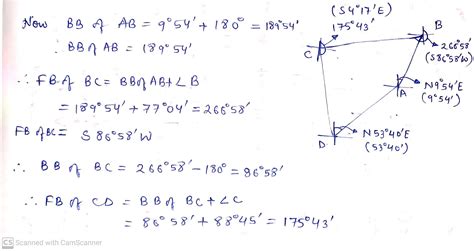 Now BB of AB = 9°54' + 180° = 189°54'
∴ BB of AB = 189°54'
∴ FB of BC = BB of AB + ∠B
= 189°54' + 77°04' = 266°58'
FB of BC = S 86°58' W
∴ BB of BC = 266°58' - 180° = 86°58'
∴ FB of CD = BB of BC + ∠C
= 86°58' + 88°45' = 175°43'
(S 4°17' E)
175°43'
B
266°58'
(S 86°58' W)
C
N 9°54' E
(9°54')
A
N 53°40' E
(53°40')
D
CS Scanned with CamScanner